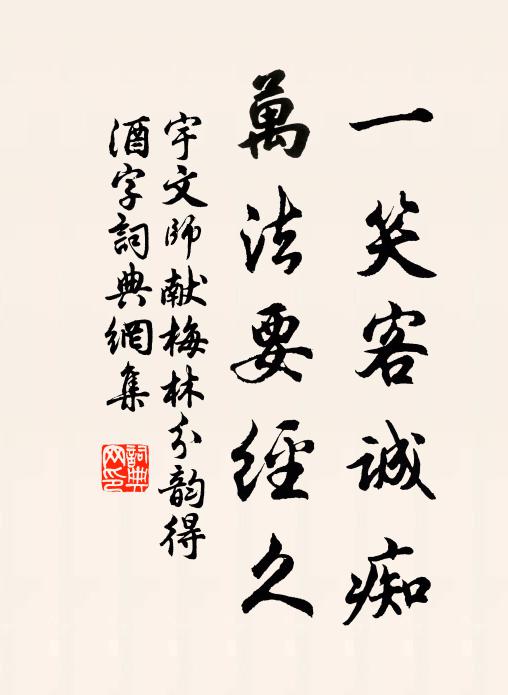 一笑客诚痴
萬法要經久
宇文師献梅林分韵得
酒字詞典網集
詞典
网印